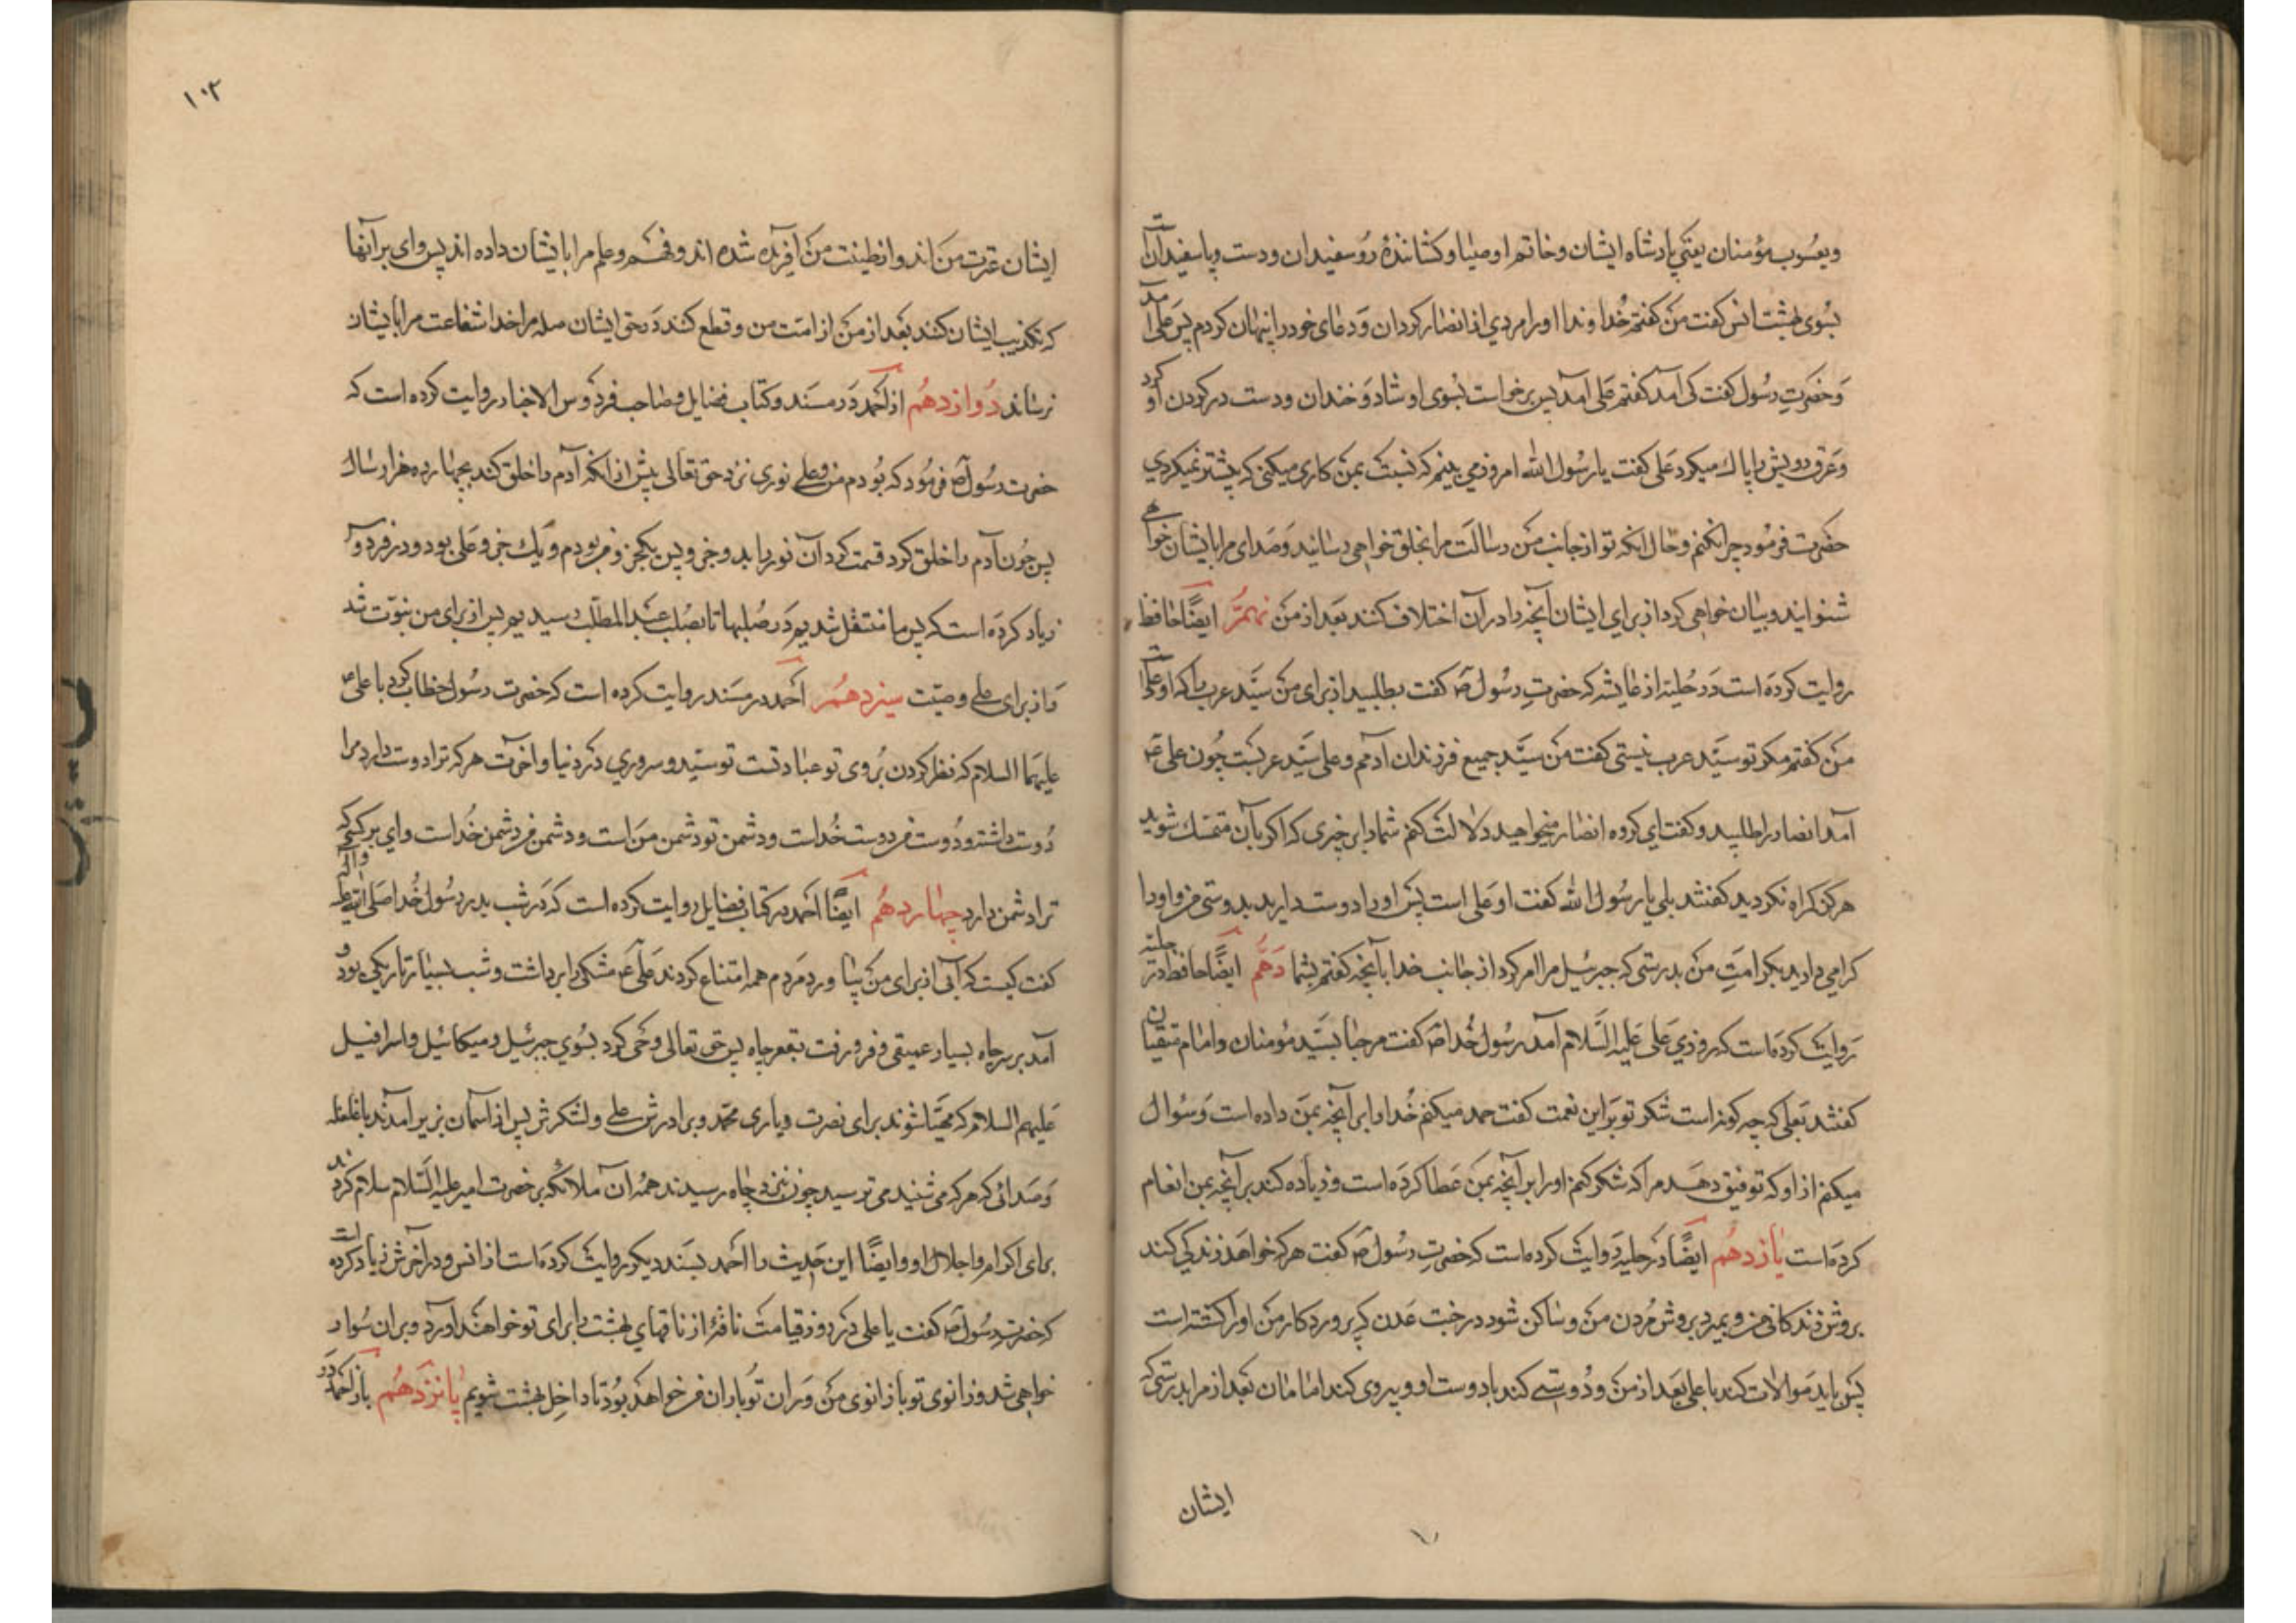 ویعسوب مؤمنان یعنی پادشاه ایشان وخاتم اوصیا وکشانندهٔ روسفیدان ودست وپاسفیدان است
بسوی بهشت انس کفت من کفتم خداوندا اورا مردی از انصار کردان ودعای خود را پنهان کردم پس علی آمد
وحضرت رسول کفت کی آمد کفتم علی آمد پس برخواست بسوی او شاد وخندان ودست در کردن او کرد
وعرق رویش را پاك میکرد علی کفت یا رسول الله امروز می بینم که نسبت بمن کاری میکنی که پیشتر نمیکردی
حضرت فرمود چرا نکنم وحال انکه تو از جانب من رسالت مرا بخلق خواهی رسانید وصدای مرا بایشان خواهی
شنوانید وبیان خواهی کرد از برای ایشان آنچه را در آن اختلاف کنند بعد از من نهم ایضًا حافظ
روایت کرده است در حلیه از عایشه که حضرت رسول ص کفت بطلبید از برای من سید عرب را که او علی است
من کفتم مکر تو سید عرب نیستی کفت من سید جمیع فرزندان آدمم وعلی سید عربست چون علی ع
آمد انصار را طلبید وکفت ای کروه انصار میخواهید دلالت کنم شما را بر چیزی که اکر بآن متمسك شوید
هرکز کمراه نکردید کفتند بلی یا رسول الله کفت او علی است پس او را دوست دارید بدوستی من واو را
کرامی دارید بکرامت من بدرستی که جبرئیل مرا امر کرد از جانب خدا بآنچه کفتم بشما دهم ایضًا حافظ در حلیه
روایت کرده است که روزی علی علیه السلام آمد رسول خدا ص کفت مرحبا بسید مؤمنان وامام متقیان
کفتند بعلی که چه کونه است شکر تو بر این نعمت کفت حمد میکنم خدا را بر آنچه بمن داده است وسوال
میکنم از او که توفیق دهد مرا که شکر کنم او را بر آنچه بمن عطا کرده است وزیاده کند بر آنچه بمن انعام
کرده است یازدهم ایضًا در حلیه روایت کرده است که حضرت رسول ص کفت هرکه خواهد زندکی کند
بروش زندکانی من وبمیرد بروش مردن من وساکن شود در جنت عدن که پروردکار من او را کشته است
پس باید موالات کند با علی بعد از من ودوستی کند با دوست او وپیروی کند امامان بعد از مرا بدرستی که
ایشان
۱۰۳
ایشان عترت من اند واز طینت من آفریده شده اند وفهم وعلم مرا بایشان داده اند پس وای بر آنها
که تکذیب ایشان کنند بعد از من از امت من وقطع کنند در حق ایشان صله مرا خدا شفاعت مرا بایشان
نرساند دوازدهم از احمد در مسند وکتاب فضایل وصاحب فردوس الاخبار روایت کرده است که
حضرت رسول ص فرمود که بودم من وعلی نوری نزد حق تعالی پیش از انکه آدم را خلق کند بچهارده هزار سال
پس چون آدم را خلق کرد قسمت کرد آن نور را بدو جزو پس یکجزو من بودم ویك جزو علی بود ودر فردوس
زیاد کرده است که پس ما منتقل شدیم در صلبها تا بصلب عبد المطلب رسیدیم پس از برای من نبوّت شد
واز برای علی وصیّت سیزدهم احمد در مسند روایت کرده است که حضرت رسول خطاب کرد با علی ع
علیهما السلام که نظر کردن بروی تو عبادتست تو سید وسروری در دنیا وآخرت هرکه ترا دوست دارد مرا
دوست داشته ودوست من دوست خداست ودشمن تو دشمن من است ودشمن من دشمن خداست وای بر کسی که
ترا دشمن دارد چهاردهم ایضًا احمد در کتاب فضایل روایت کرده است که در شب بدر رسول خدا صلی الله علیه وآله
کفت کیست که آبی از برای من بیاورد مردم همه امتناع کردند علی ع مشکی را برداشت وشب بسیار تاریکی بود و
آمد بر سر چاه بسیار عمیقی وفرو رفت بقعر چاه پس حق تعالی وحی کرد بسوی جبرئیل ومیکائیل واسرافیل
علیهم السلام که مهیّا شوند برای نصرت ویاری محمد وبرادرش علی ولشکرش پس از آسمان بزیر آمدند با غلغله
وصدائی که هرکه می شنید می ترسید چون بنزد چاه رسیدند همه آن ملائکه بر حضرت امیر علیه السلام سلام کردند
برای اکرام واجلال او وایضًا این حدیث را احمد بسند دیکر روایت کرده است از انس ودر آخرش زیاد کرده است
که حضرت رسول ص کفت یا علی در روز قیامت ناقهٔ از ناقهای بهشت را برای تو خواهند آورد وبر ان سوار
خواهی شد وزانوی تو با زانوی من وران تو با ران من خواهد بود تا داخل بهشت شویم پانزدهم باز احمد در